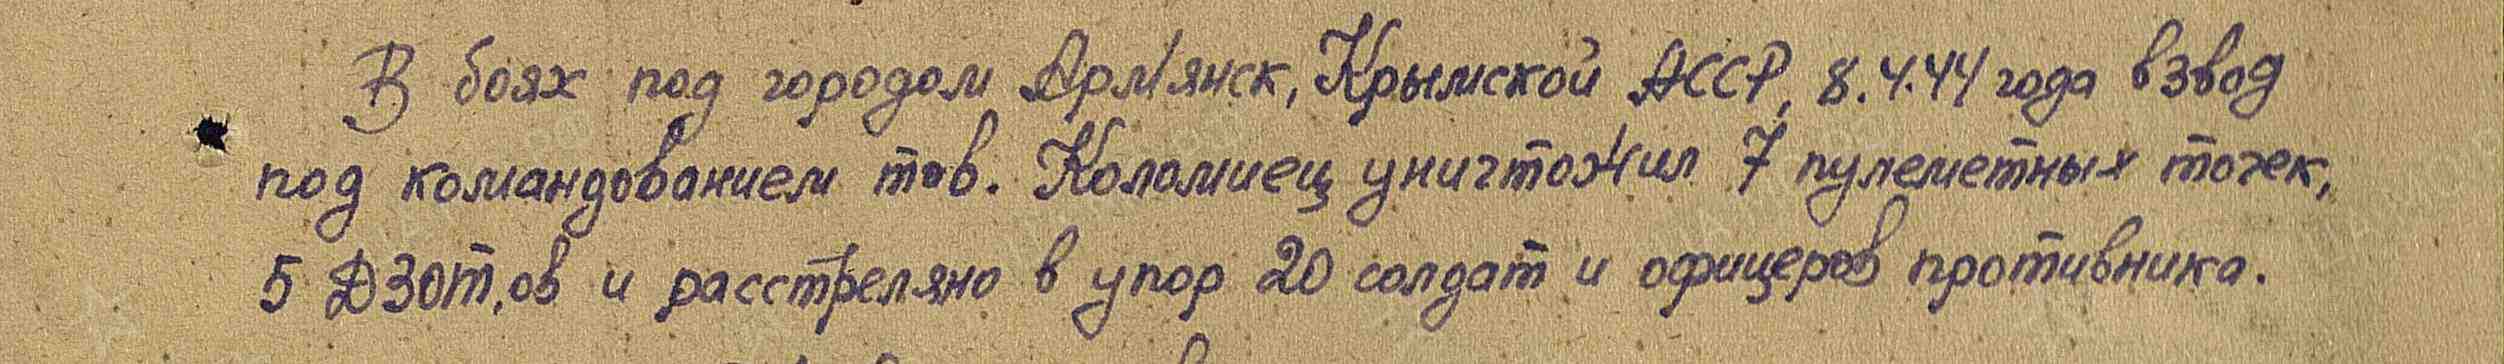 В боях под городом Арм'янск, Крымской АССР, 8.4.44 года взвод
под командованием тов. Коломиец уничтожил 7 пулеметных точек,
5 ДЗОТ,ов и расстреляно в упор 20 солдат и офицеров противника.